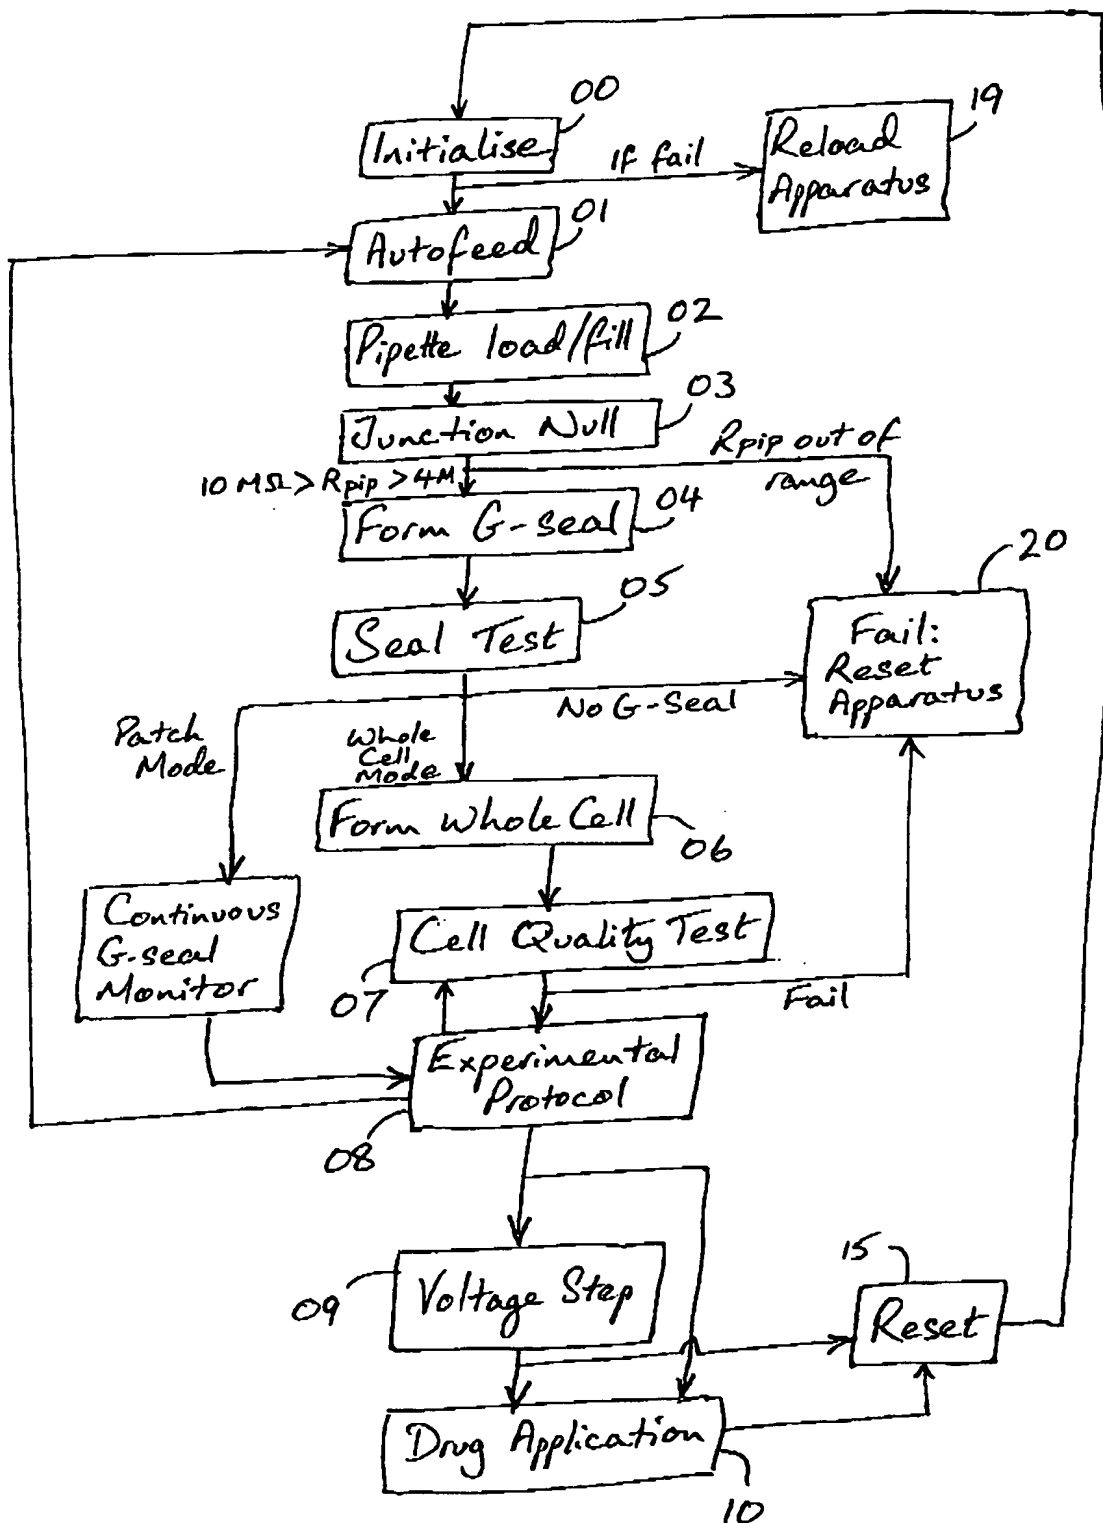 00
Initialise
If fail
19
Reload
Apparatus
01
Autofeed
02
Pipette load/fill
03
Junction Null
10 MΩ > Rpip > 4M
Rpip out of
range
04
Form G-seal
05
Seal Test
20
Fail:
Reset
Apparatus
No G-Seal
Patch
Mode
Whole
Cell
Mode
Form Whole Cell
06
Continuous
G-seal
Monitor
Cell Quality Test
07
Fail
Experimental
Protocol
08
Voltage Step
09
15
Reset
Drug Application
10